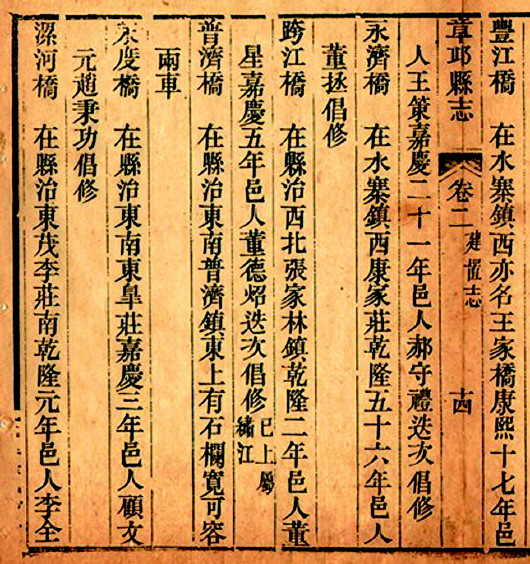 豐江橋　在水寨鎮西亦名王家橋康熙十七年邑
章邱縣志　卷二　建置志　十四
人王策嘉慶二十一年邑人郝守禮迭次倡修
永濟橋　在水寨鎮西康家莊乾隆五十六年邑人
董拯倡修
跨江橋　在縣治西北張家林鎮乾隆二年邑人董
星嘉慶五年邑人董德炤迭次倡修已上屬繡江
普濟橋　在縣治東南普濟鎮東上有石欄寬可容
兩車
永度橋　在縣治東南東皐莊嘉慶三年邑人顧文
元趙秉功倡修
漯河橋　在縣治東茂李莊南乾隆元年邑人李全